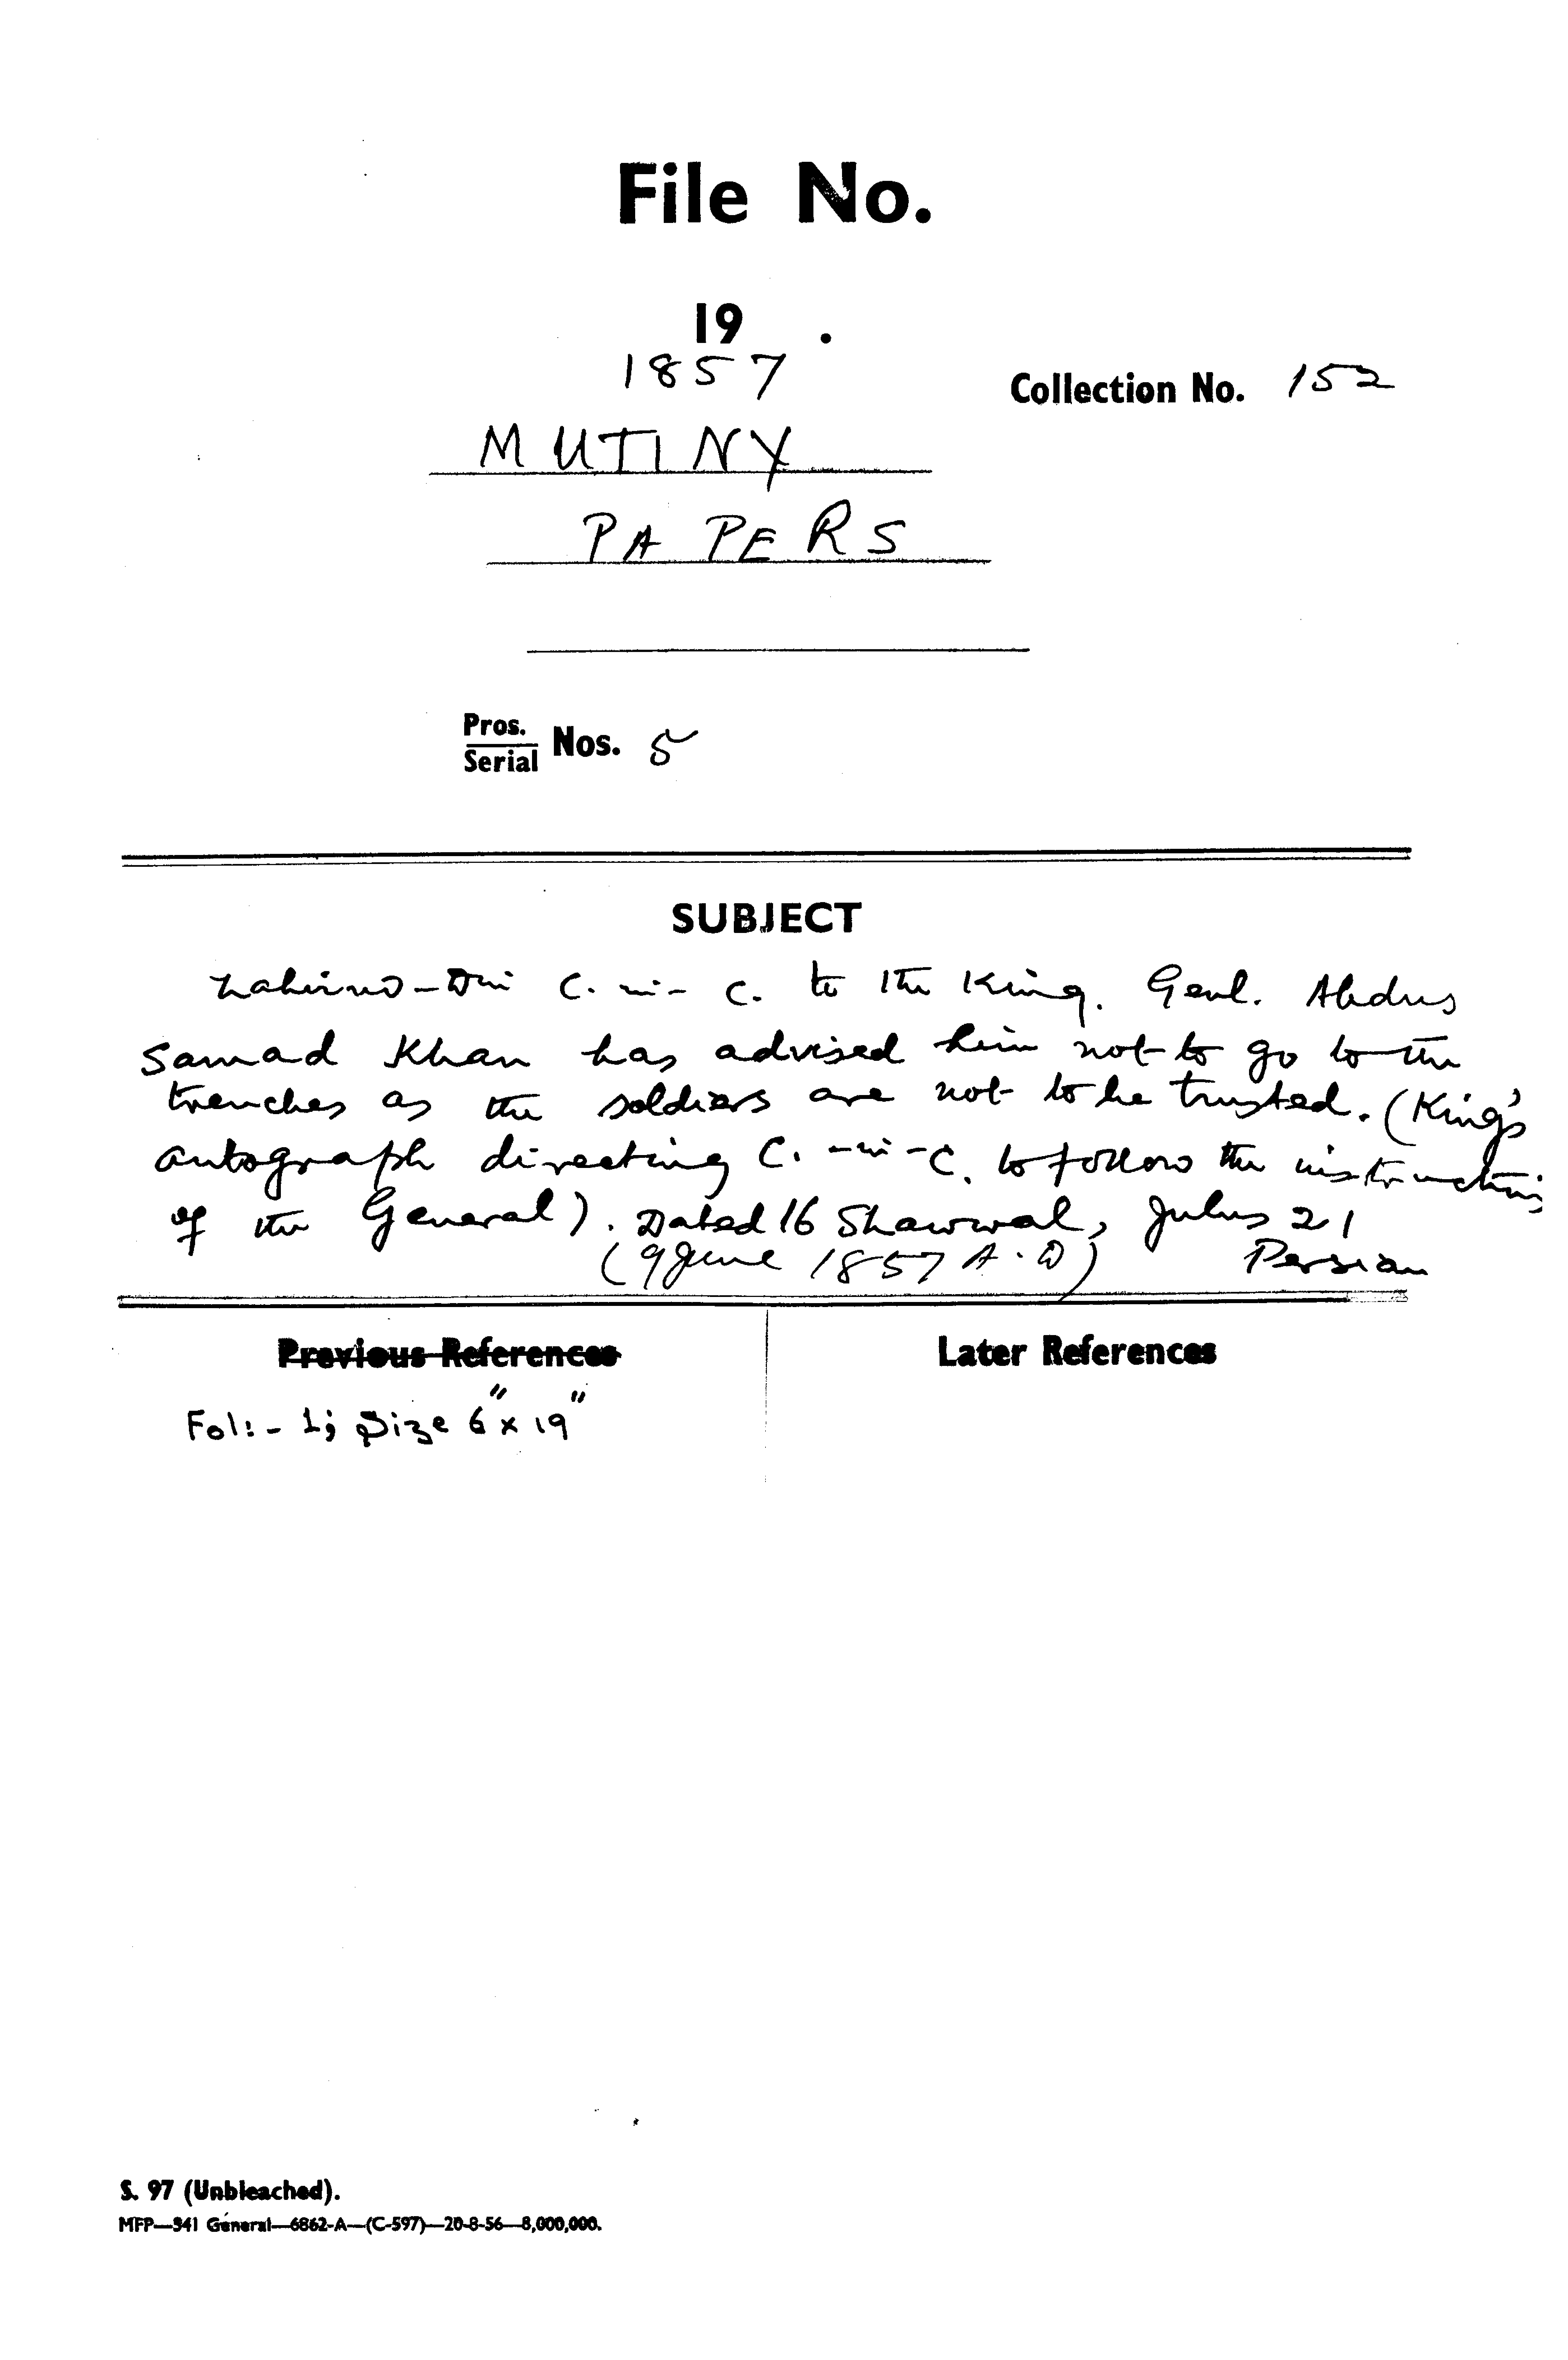 File No.
19 .
1857
Collection No. 152
MUTINY
PAPERS
Pros.
Serial Nos. 5
SUBJECT
C. in- C. to the King. Genl. Abdus
Samad Khan has advised him not to go to the
trenches as the soldiers are not to be trusted. (King's
autograph directing C. -in-C. to follow the instructions
of the General). Dated 16 Shawwal, Julus 21
(9 June 1857 A.D) Persian
Previous References
Later References
Fol:- 1; Size 6" x 19"
S. 97 (Unbleached).
MFP—941 General—6862-A—(C-597)—20-8-56—8,000,000.